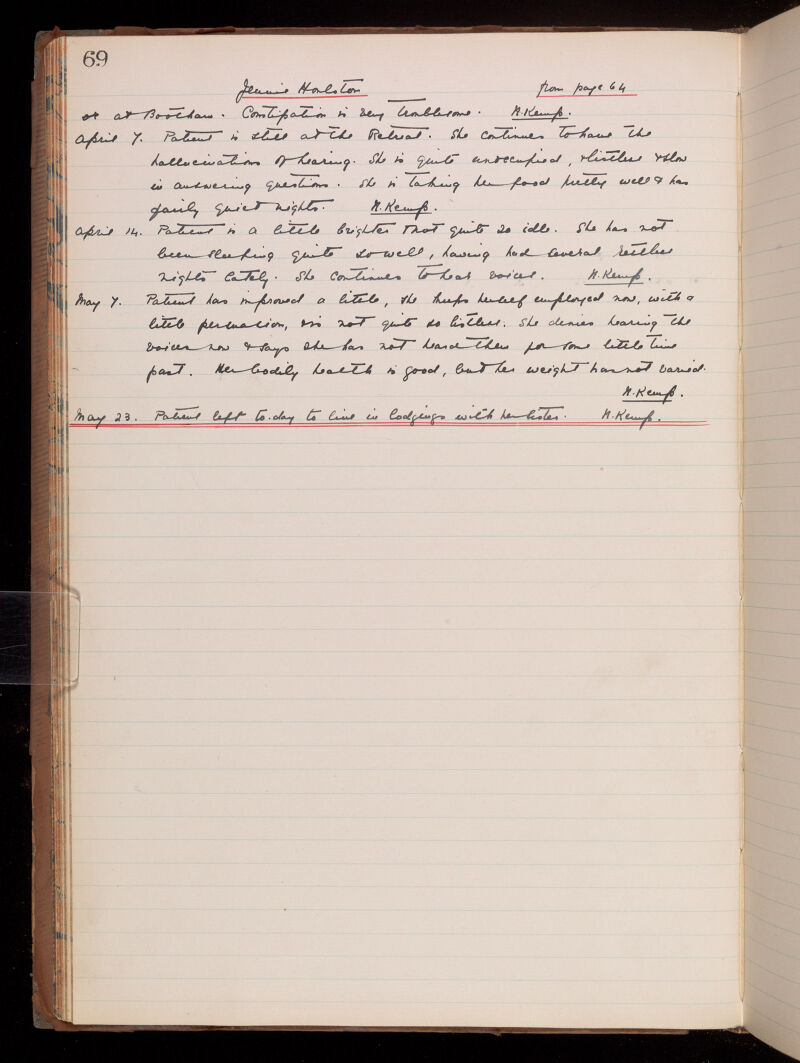 69
Jeannie Houlston from page 64
or at Bootham. Constipation is very troublesome. N. Kemp.
April 7. Patient is still at the Retreat. She continues to have the
hallucinations of hearing. She is quite unoccupied, & listless & slow
in answering questions. She is taking her food pretty well & has
fairly quiet nights. N. Kemp.
April 14. Patient is a little brighter & not quite so idle. She has not
been sleeping quite so well, having had several restless
nights lately. She continues to hear voices. N. Kemp.
May 7. Patient has improved a little, she keeps herself employed now, with a
little persuasion, & is not quite so listless. She denies hearing the
voices now & says she has not heard them for some little time
past. Her bodily health is good, but her weight has not varied.
N. Kemp.
May 23. Patient left to-day to live in lodgings with her sister. N. Kemp.